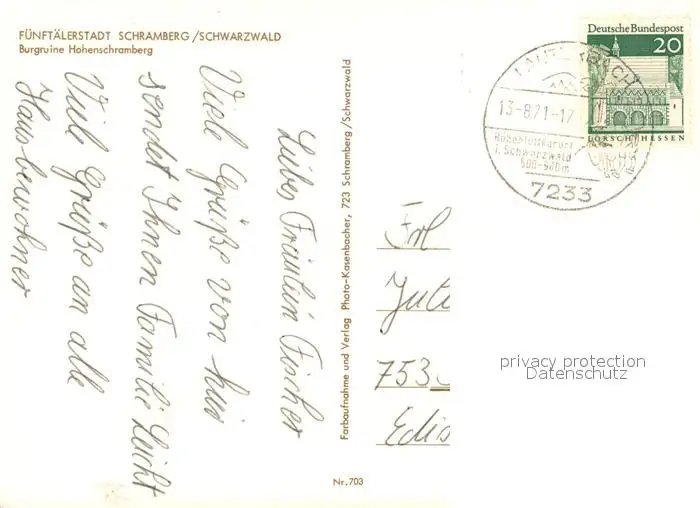 FÜNFTÄLERSTADT SCHRAMBERG/SCHWARZWALD
Burgruine Hohenschramberg
Liebes Fräulein Fischer
Viele Grüße von hier
sendet Ihnen Familie Leicht
Viele Grüße an alle
Hausbewohner
Farbaufnahme und Verlag Photo-Kasenbacher, 723 Schramberg/Schwarzwald
Nr. 703
Deutsche Bundespost
20
LORSCH/HESSEN
LAUTERBACH
13-8.71-17
Höhenluftkurort
i. Schwarzwald
7233
Frl
753
privacy protection
Datenschutz